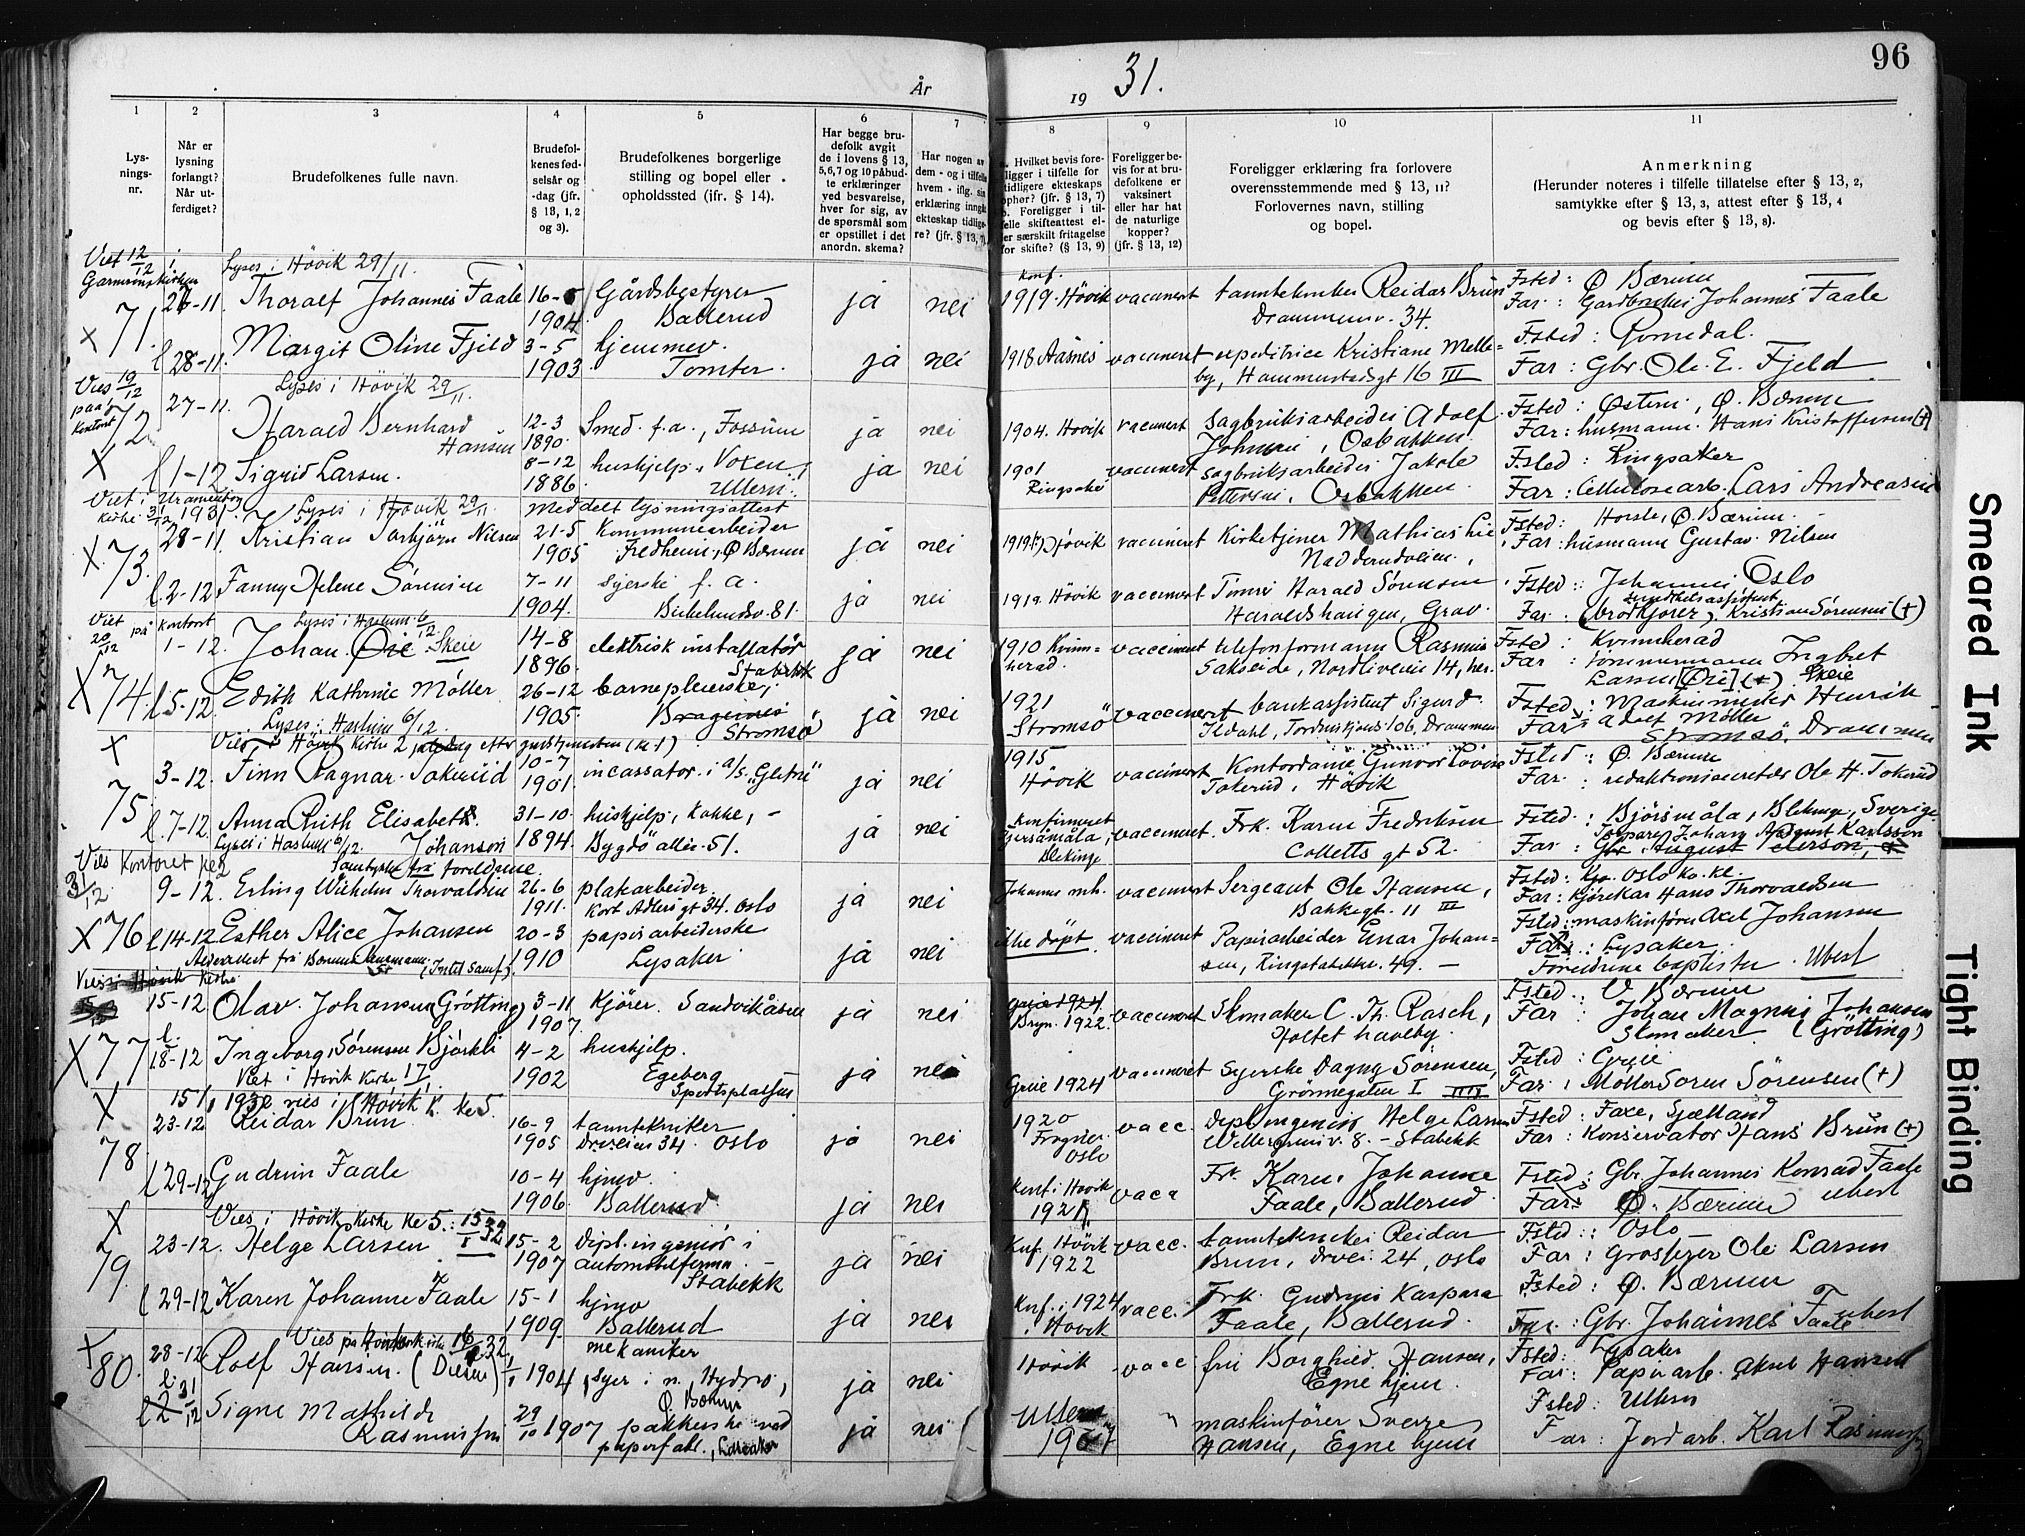 96
År
19 31.
1
2
3
4
5
6
7
8
9
10
11
Lys-
nings-
nr.
Når er
lysning
forlangt?
Når ut-
ferdiget?
Brudefolkenes fulle navn.
Brudefol-
kenes fød-
selsår og
-dag (jfr.
§ 13, 1, 2
og 3).
Brudefolkenes borgerlige
stilling og bopel eller
opholdssted (jfr. § 14).
Har begge bru-
defolk avgit
de i lovens § 13,
5,6,7 og 10 påbud-
te erklæringer
ved besvarelse,
hver for sig, av
de spørsmål som
er opstillet i det
anordn. skema?
Har nogen av
dem - og i tilfelle
hvem - iflg. sin
erklæring inngått
ekteskap tidlige-
re? (jfr. § 13, 7)
Hvilket bevis fore-
ligger i tilfelle for
tidligere ekteskaps
ophør? (jfr. § 13, 7)
b. Foreligger i til-
felle skifteattest el-
ler særskilt fritagelse
for skifte? (§ 13, 9)
Foreligger be-
vis for at bru-
defolkene er
vaksinert
eller har hat
de naturlige
kopper?
(jfr. § 13, 12)
Foreligger erklæring fra forlovere
overensstemmende med § 13, 11?
Forlovernes navn, stilling
og bopel.
Anmerkning
(Herunder noteres i tilfelle tillatelse efter § 13, 2,
samtykke efter § 13, 3, attest efter § 13, 4
og bevis efter § 13, 8).
Viet 12/12 i
Lyses i Hövik 29/11.
X 71. 26-11. Thoralf Johannes Faale 16-5 1904. Gårdsbestyrer Ballerud ja nei
Konf. 1919. Hövik vaccinert tanntekniker Reidar Brun Drammensv. 34.
Fsted: Ø. Bærum
Far: Johannes Faale
l 28-11. Margit Oline Fjeld 3-5 1903. hjemmev. Tomter. ja nei
1918 Aasnes vaccineret Kristiane Melle-
by, 16 III
Fsted: Romedal.
Far: Gbr. Ole E. Fjeld
Vies 19/12 paa kontoret
Lyses i Hövik 29/11
X 72 27-11. Harald Bernhard Hansen 12-3 1890. Smed f.a., Fossum ja nei
1904. Hövik vaccinert Sagbruksarbeider Adolf Johnsen, Osbakken.
Fsted: Østern, Ø. Bærum
Far: husmann Hans Kristoffersen (+)
l 1-12 Sigrid Larsen. 8-12 1886. hushjelp, Voxen, Ullern. ja nei
1901 Ringsaker vaccinert sagbruksarbeider Jakob Pettersen, Osbakken
Fsted: Ringsaker
Far: Cellulosearb. Lars Andreassen
Viet i Uranienborg kirke 31/12 1931.
Lyses i Hövik 29/11 meddelt lysningsattest
X. 73. 28-11. Kristian Torbjörn Nilsen 21-5 1905 Kommunearbeider Fredheim, Ø Bærum ja nei
1919 Hövik vaccineret Kirketjener Mathias Lie, Nadderudveien.
Fsted: Ø. Bærum.
Far: husmann Gustav Nilsen
l. 2-12. Fanny Helene Sörensen 7-11 1904. syerske f. a. Birkelundsv. 81. ja nei
1919. Hövik vaccinert Tömrer Harald Sørensen Haraldshaugen, Grav.
Fsted: Johannes Oslo
Far: (brödkjører) Kristian Sørensen (+)
Viet 20/12 på kontoret
Lyses i Haslum 6/12
X 74. 1-12. Johan Øie Skeie 14-8 1896. elektrisk installatør Stabekk ja nei
1910 Kvinn-
herad. vaccinert telefonformann Rasmus Sakseide, Nordliveien 14, her.
Fsted: Kvinnherad
Far: tömmermann Ingbret Larsen [Øie] (+) Skeie
l 5-12. Edith Kathrine Möller 26-12 1905. barnepleierske, Bragernes Strömsö ja nei
1921 Strömsö vaccinert bankassistent Sigurd Ildahl, 106, Drammen
Fsted: Maskinmester Henrik
Far: Adolf Möller Strömsö, Drammen
Lyses i Haslum 6/12
X 75. 3-12. Finn Ragnar Tokerud 10-7 1901. incassator i a/s. "Glitne" ja nei
1915 Hövik vaccinert Kontordame Gunvor Lovise Tokerud, Hövik
Fsted: Ø. Bærum
Far: redaktionssecretær Ole H. Tokerud
l. 7-12. Anna Ruth Elisabeth Johanson 31-10. 1894. hushjelp, Kokke, - Bygdö allé 51. ja nei
Konfirmeret Blekinge vaccineret. Frk. Karen Fredriksen Colletts gt 52.
Fsted: Björsmåla, Blekinge, Sverige
Far: Johan August Karlsson
Lyses i Haslum 6/12.
Vies Kontoret kl 2 31/12
Samtykke fra foreldrene.
X 76 9-12. Erling Wilhelm Thorvaldsen 26-6 1911. platearbeider. Kort Adlers gt 34. Oslo ja nei
Johannes mh. vaccinert Sergeant Ole Hansen, Bakkegt. 11 III
Fsted: Oslo ko. kl.
Far: Kjørekar Hans Thorvaldsen
l 14-12 Esther Alice Johansen 20-3 1910 papirarbeiderske Lysaker ja nei
ikke döpt. vaccineret Papirarbeider Einar Johan-
sen, Ringstabekkv. 49. -
Fsted: maskinfører Axel Johansen
Far: Lysaker
Foreldrene baptister. Ubest
Vies i Hövik Kirke
X 77 15-12 Olav Johansen (Grötting) 3-11 1907. Kjörer. Sandvikåsen ja nei
Bryn. 1922. vaccinert Skomaker C. Th. Rasch, Holtet haveby.
Fsted: V. Bærum
Far: Johan Magnus Johansen Skomaker (Grötting)
l. 18-12 Ingeborg Sörensen Bjørkli 4-2 1902 hushjelp. Egeberg Sportsplassen ja nei
Grue 1924 vaccineret Syerske Dagny Sørensen, Grönnegaten I IIII
Fsted: Grue
Far: Möller Soren Sørensen (+)
Viet i Hövik Kirke 17/1.
15/1 1932 vies i Hövik K. kl 5.
X 78 23-12 Reidar Brun 16-9 1905 tanntekniker Drveien 34. Oslo ja nei
1920 Frogner Oslo vacc. Dipl. ingeniør Helge Larsen 8. - Stabekk
Fsted: Faxe, Sjælland
Far: Konservator Hans Brun (+)
l 29-12 Gudrun Faale 10-4 1906 hjmv. Ballerud ja nei
Konf. i Hövik 1921. vacc Frk. Karen Johanne Faale, Ballerud.
Fsted: Gbr. Johannes Konrad Faale
Far: Ø. Bærum ubest
Vies i Hövik Kirke kl 5. 15/1 32
X 79. 23-12. Helge Larsen 15-2 1907 Dipl. ingeniör i automobilfirma - Stabekk ja nei
Knf. Hövik 1922 vacc. tanntekniker Reidar Brun, Drvei. 24, Oslo
Fsted: Oslo
Far: Grosserer Ole Larsen
l 29-12 Karen Johanne Faale 15-1 1909. hjmv Ballerud ja nei
Knf. i 1924 i Hövik vacc. Frk. Gudrun Kaspara Faale, Ballerud.
Fsted: Ø. Bærum
Far: Gbr. Johannes Faale ubest
X 80. 28-12 Rolf Hansen (Diesen) 1904 mekaniker, Hydro, Ö. Bærum ja nei
Hövik vacc fru Borghild Hansen, Egne hjem.
Fsted: Lysaker
Far: Papirarb. Aksel Hansen
l 31/12 Signe Mathilde Rasmussen 29/10 1907 pakkerske ved papirfabr., Lilleaker ja nei
Ullern " maskinfører Sverre Hansen, Egne hjem
Fsted: Ullern
Far: Jordarb. Karl Rasmussen
Smeared Ink
Tight Binding